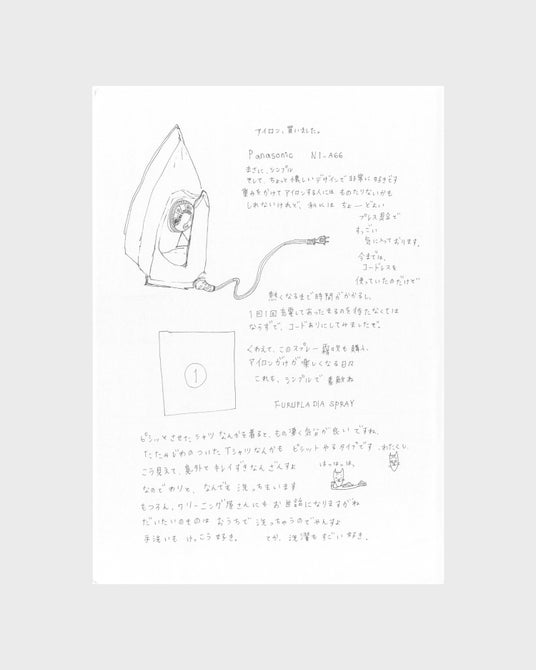 アイロン、買いました。
Panasonic NI-A66
まさに、シンプル
そして ちょっと懐しいデザインで 非常に好きです
重みをかけてアイロンする人には ものたりないかも
しれないけれど、私には ちょーどよい
プレス具合で
すっごい
気に入っております。
今までは、
コードレスを
使っていたのだけど
熱くなるまで時間がかかるし、
1回1回 充電してあったまるのを待たなくては
ならずで、コードありにしてみましたぞ。
くわえて、このスプレー 霧吹も購入、
アイロンがけが 楽しくなる日々
これも、シンプルで 素敵ね
1
FURUPLA DIA SPRAY
ピシッとさせたシャツ なんかを着ると、もの凄く気分が良いですね、
たたみじわのついた Tシャツなんかも ピシット やるタイプです、わたくし、
こう見えて、意外と キレイずきなんざんすよ
はっはっは、
なので わりと、なんでも 洗っちまいます
もちろん、クリーニング屋さんにも お世話になりますがね
だいたいのものは おうちで 洗っちゃうのでやんすよ
手洗いも けっこう好き。 てか、洗濯も すごい 好き、